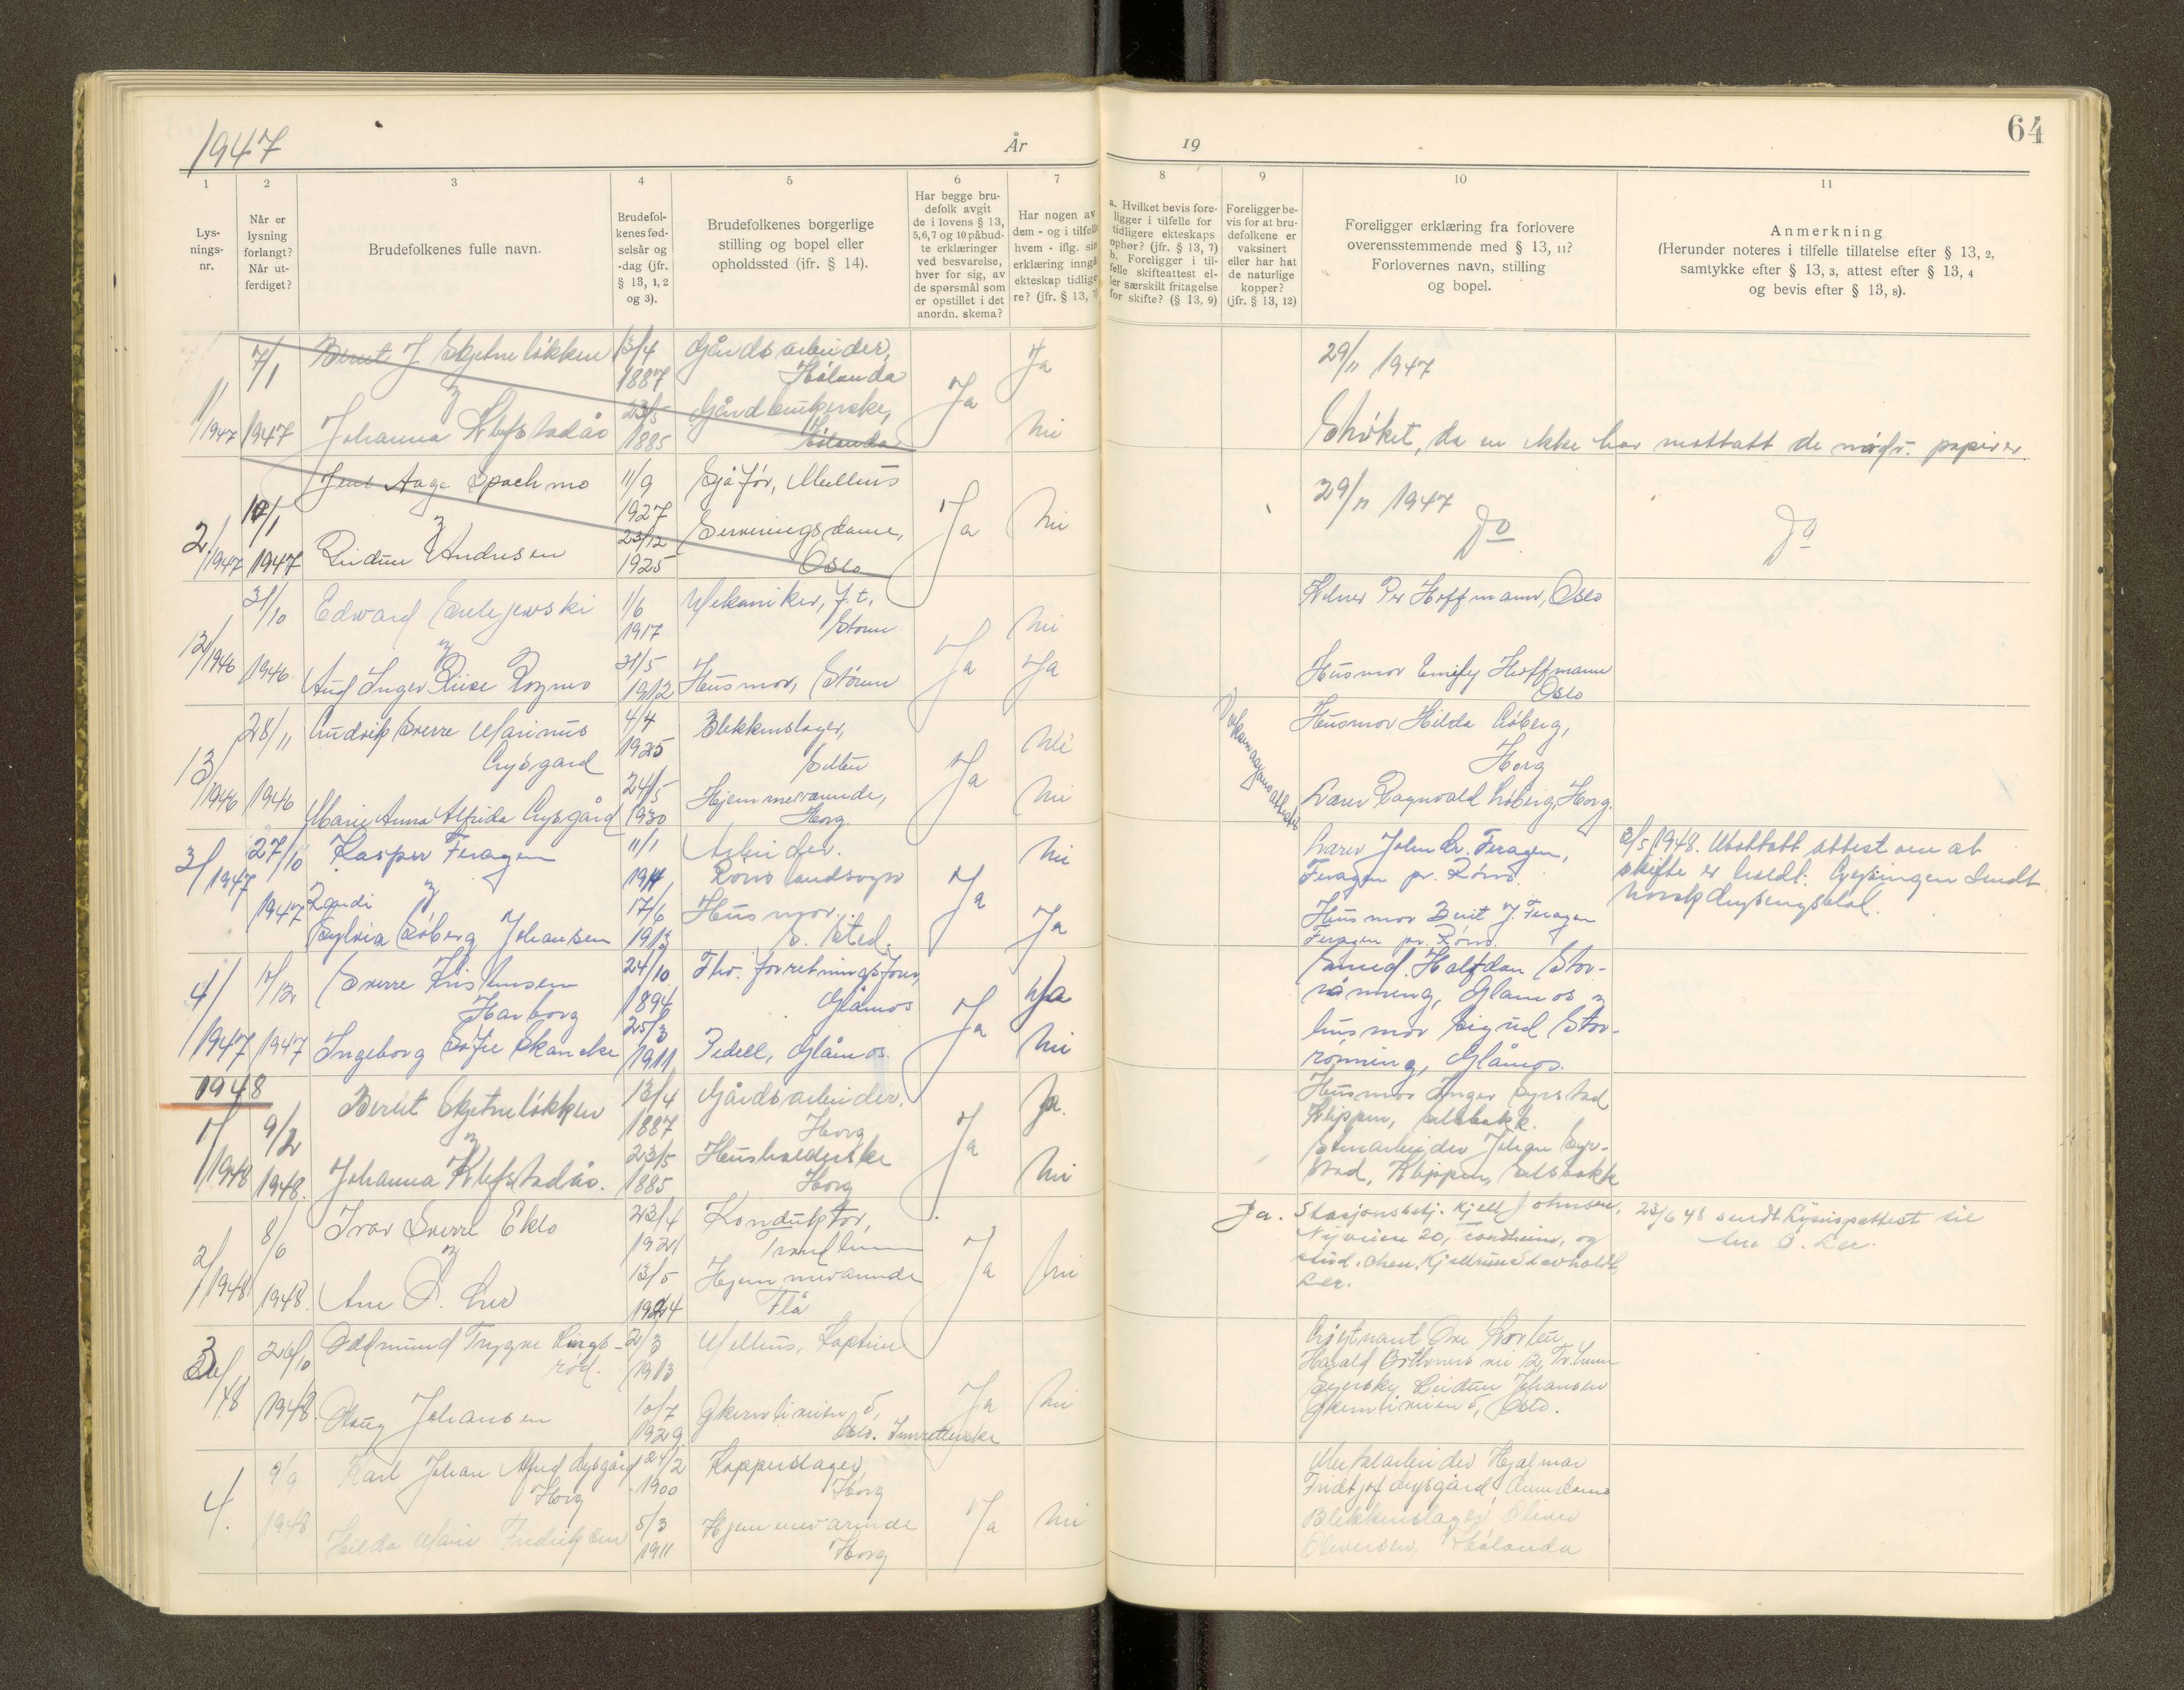 1947
År
19
64
1
2
3
4
5
6
7
8
9
10
11
Lys-
nings-
nr.
Når er
lysning
forlangt?
Når ut-
ferdiget?
Brudefolkenes fulle navn.
Brudefol-
kenes fød-
selsår og
-dag (jfr.
§ 13, 1, 2
og 3).
Brudefolkenes borgerlige
stilling og bopel eller
opholdssted (ifr. § 14).
Har begge bru-
defolk avgit
de i lovens § 13,
5,6,7 og 10 påbud-
te erklæringer
ved besvarelse,
hver for sig, av
de spørsmål som
er opstillet i det
anordn. skema?
Har nogen av
dem - og i tilfelle
hvem - iflg. sin
erklæring inngå
ekteskap tidlige
re? (jfr. § 13, 7)
a. Hvilket bevis fore-
ligger i tilfelle for
tidligere ekteskaps
ophør? (jfr. § 13, 7)
b. Foreligger i til-
felle skifteattest el-
ler særskilt fritagelse
for skifte? (§ 13, 9)
Foreligger be-
vis for at bru-
defolkene er
vaksinert
eller har hat
de naturlige
kopper?
(jfr. § 13, 12)
Foreligger erklæring fra forlovere
overensstemmende med § 13, 11?
Forlovernes navn, stilling
og bopel.
Anmerkning
(Herunder noteres i tilfelle tillatelse efter § 13, 2,
samtykke efter § 13, 3, attest efter § 13, 4
og bevis efter § 13, 8).
1/1947
7/1 1947
Bernt J Skjetneløkken
Johanna Klefstadås
13/4 1887
23/5 1885
Gårdsarbeider,
Hølonda
Gårdbrukerske,
Hølonda
Ja
Ja
Nei
29/11 1947
Strøket, da en ikke har mottatt de papirer.
2/1947
10/1 1947
Jens Aage Spachmo
Reidun Andresen
11/9 1927
23/12 1925
Sjåfør, Melhus
Serveringsdame,
Oslo
Ja
Nei
29/11 1947
Do
Do
12/1946
31/10 1946
Edward
Aud Inger Riise Rognes
1/6 1917
31/5 1912
Mekaniker, f.t.
Støren
Husmor, Støren
Ja
Nei
Ja
Per Hoffmann, Oslo
Husmor Emily Hoffmann
Oslo
13/1946
28/11 1946
Gudvik Sverre Marinus
Lysgard
Marie Anna Alfrida Lysgård
4/4 1925
24/5 1930
Blikkenslager,
Hjemmeværende,
Horg.
Ja
Nei
Nei
Husmor Hilda Løberg,
Horg
Lærer Ragnvald Løberg, Horg.
3/1947
27/10 1947
Kasper Feragen
Sylvia Solberg Johansen
11/1 1914
17/6
Arbeider.
Røros landsogn
Husmor.
S. sted.
Ja
Nei
Ja
Feragen,
Feragen pr. Røros.
Husmor Berit J. Feragen
Feragen pr. Røros.
3/5 1948. Mottatt attest om at
skifte er holdt. Lysingen sendt
4/1947
11/12 1947
Sverre Kristensen
Harborg
Ingeborg Sofie Skancke
24/10 1894
25/3 1911
Fhv. forretningsfører,
Glåmos
Pedell, Glåmos.
Ja
Ja
Nei
Halfdan Stor-
rønning, Glåmos
husmor Sigrid Stor-
rønning, Glåmos.
1948
1/1948
9/2 1948.
Bernt Skjetneløkken
Johanna Klefstadås.
13/4 1887
23/5 1885
Gårdsarbeider.
Horg
Husholderske
Horg
Ja
Ja.
Nei
Husmor Inger Syrstad
Klippen, Selsbakk.
Stenarbeider Johan Syr-
stad, Klippen, Selsbakk
2/1948
8/6 1948.
Ivar Sverre Eklo
Ane O. Ler
23/4 1921
13/5 1924
Konduktør,
Trondheim
Hjemmeværende
Flå
Ja
Nei
Ja.
Stasjonsbetj. Kjell Johnsen,
Nyveien 20, Trondheim, og
stud.
Ler.
23/6 48 sendt Lysingsattest til
Ane O. Ler.
3/48
26/10 1948.
Oddmund Trygve
Johansen
2/3 1913
10/7 1929
Melhus, Kaptein
5,
Oslo.
Ja
Nei
Løytnant
Reidun Johansen
5, Oslo.
4.
9/9 1948
Karl Johan Alfred Lysgård
Horg
Hilda Marie Fredriksen
24/2 1900
5/3 1911
Kopperslager
Horg
Hjemmeværende
Horg
Ja
Nei
Metalarbeider Hjalmar
Fridtjof Lysgård,
Blikkenslager Oliver
Oliversen, Hølonda